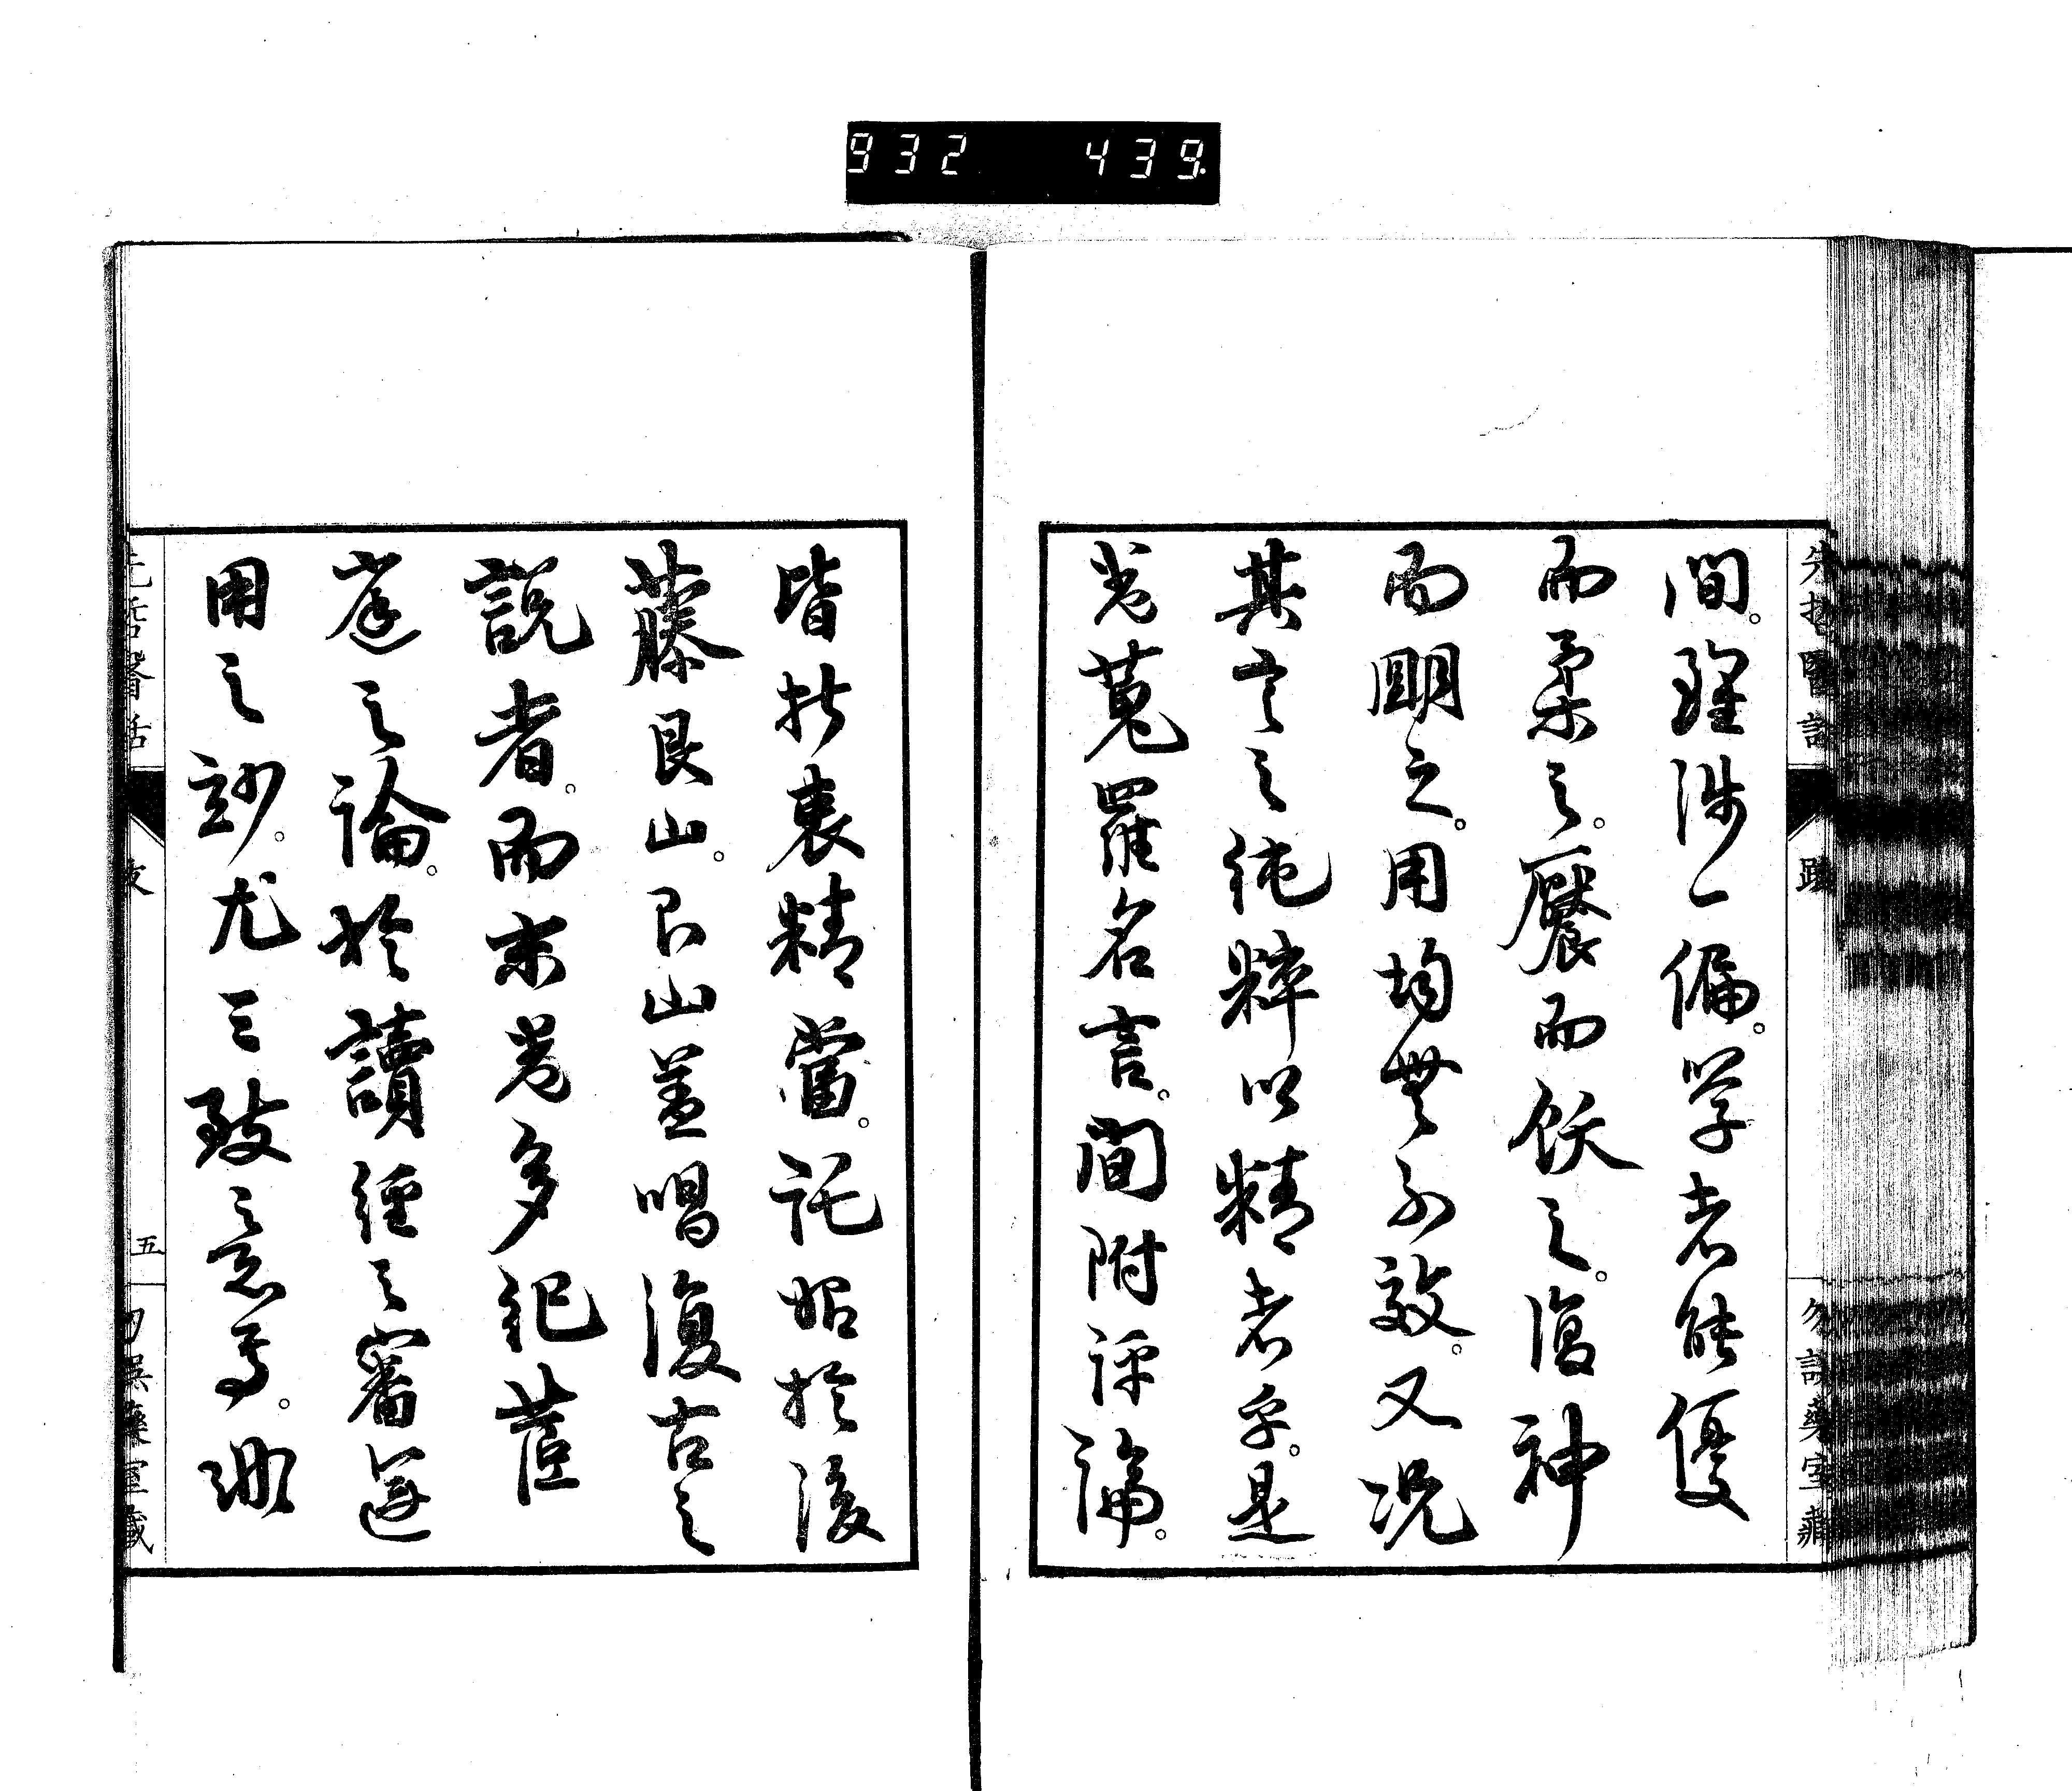 932 439
先哲醫話
跋
勿誤藥室藏
間。理涉一偏。学者能優
而柔之。饜而飫之。復神
而明之。用均無不效。又况
其言之純粹以精者乎。是
卷蒐羅名言。間附評論。
皆折衷精當。託始於後
藤艮山。艮山蓋唱復古之
說者。而末卷多紀茝
庭之論。於讀經之審運
用之妙。尤三致意焉。
先哲醫話
跋
五
勿誤藥室藏